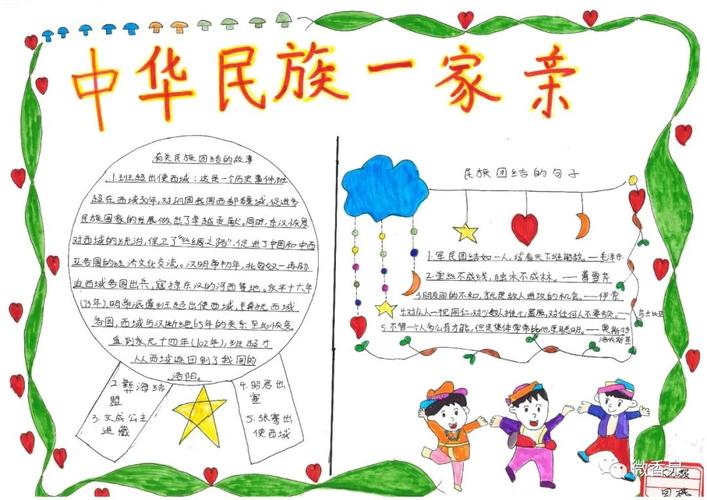 中华民族一家亲
有关民族团结的故事
1.班超出使西域:这是一个历史事件,班
超在西域30年,对巩固我国西部疆域,促进多
民族国家的发展做出了卓越贡献,同时,东汉恢复
对西域的统治,保卫了“丝绸之路”,促进了中国和中西
亚各国的经济文化交流。汉明帝初年,北匈奴一再胁
迫西域各国出兵,寇掠东汉的河西等地,永平十六年
(73年),明帝派遣班超出使西域,
各国,西域与汉断绝65年的关系至此恢复,
直到永元十四年(102年),班超才
从西域返回到了我国的
洛阳。
2.黎海结
盟
3.文成公主
进藏
4.昭君出
塞
5.张骞出
使西域
民族团结的句子
1.军民团结如一人,试看天下谁能敌。——毛泽东
2.单丝不成线,独木不成林。——曹雪芹
3.朋友间的不和,就是敌人进攻的机会。——伊索
4.对众人一视同仁,对少数人推心置腹,对任何人不要亏负。——莎士比亚
5.不管一个人多么有才能,但是集体常常比他更聪明。——奥斯特
洛夫斯基
微香阜